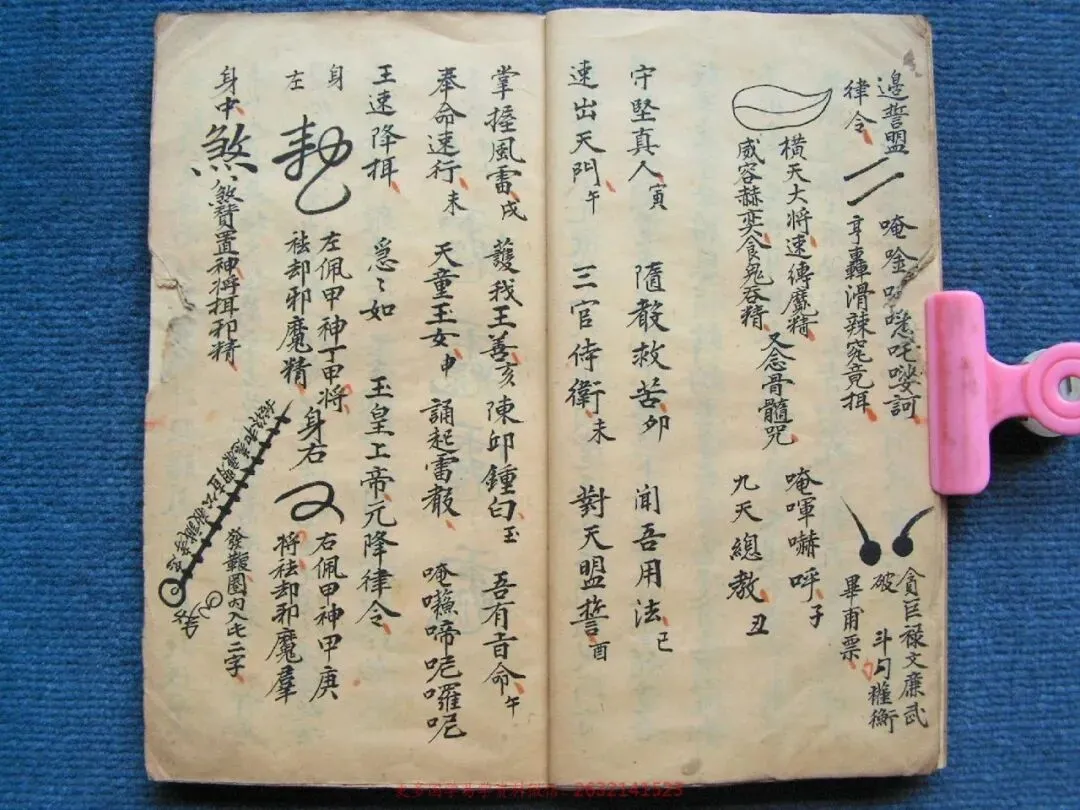 邊誓盟
律令
唵
吒㖿訶
亨轟滑辣究竟揖
橫天大将速縛魔精
威容赫奕食鬼吞精
又念骨髓咒
貪巨禄文廉武
破
斗勺權衡
畢甫票
唵㖞嚇呼子
九天總教丑
守堅真人寅
隨教救苦卯
闻吾用法巳
速出天門午
三官侍衛未
對天盟誓酉
掌握風雷戌
護我王善亥
陳邱鍾白玉
吾有旨命午
奉命速行未
天童玉女申
誦起雷教
唵啼呢囉呢
王速降揖
急々如
玉皇上帝元降律令
身
左
左佩甲神丁甲将
祛却邪魔精
身右
右佩甲神甲庚
将祛却邪魔羣
身中
煞
煞贊置神将揖邪精
圈内入七二字
2632141525